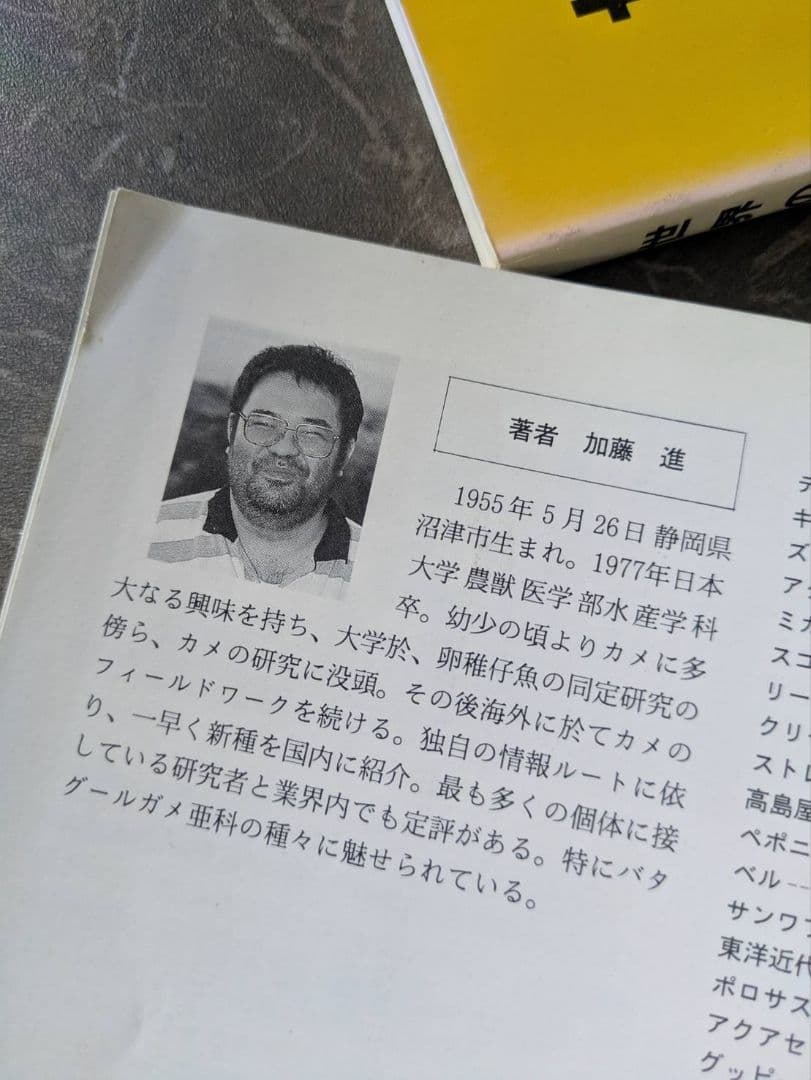 著者 加藤 進
1955年5月26日静岡県
沼津市生まれ。1977年日本
大学農獣医学部水産学科
卒。幼少の頃よりカメに多
大なる興味を持ち、大学於、卵稚仔魚の同定研究の
傍ら、カメの研究に没頭。その後海外に於てカメの
フィールドワークを続ける。独自の情報ルートに依
り、一早く新種を国内に紹介。最も多くの個体に接
している研究者と業界内でも定評がある。特にバタ
グールガメ亜科の種々に魅せられている。
キ
ズ
ア
ミカ
スコ
リー
クリ
ストレ
高島屋
ペポニ
ベル
サンワ
東洋近代
ポロサス
アクアセ
グッピ